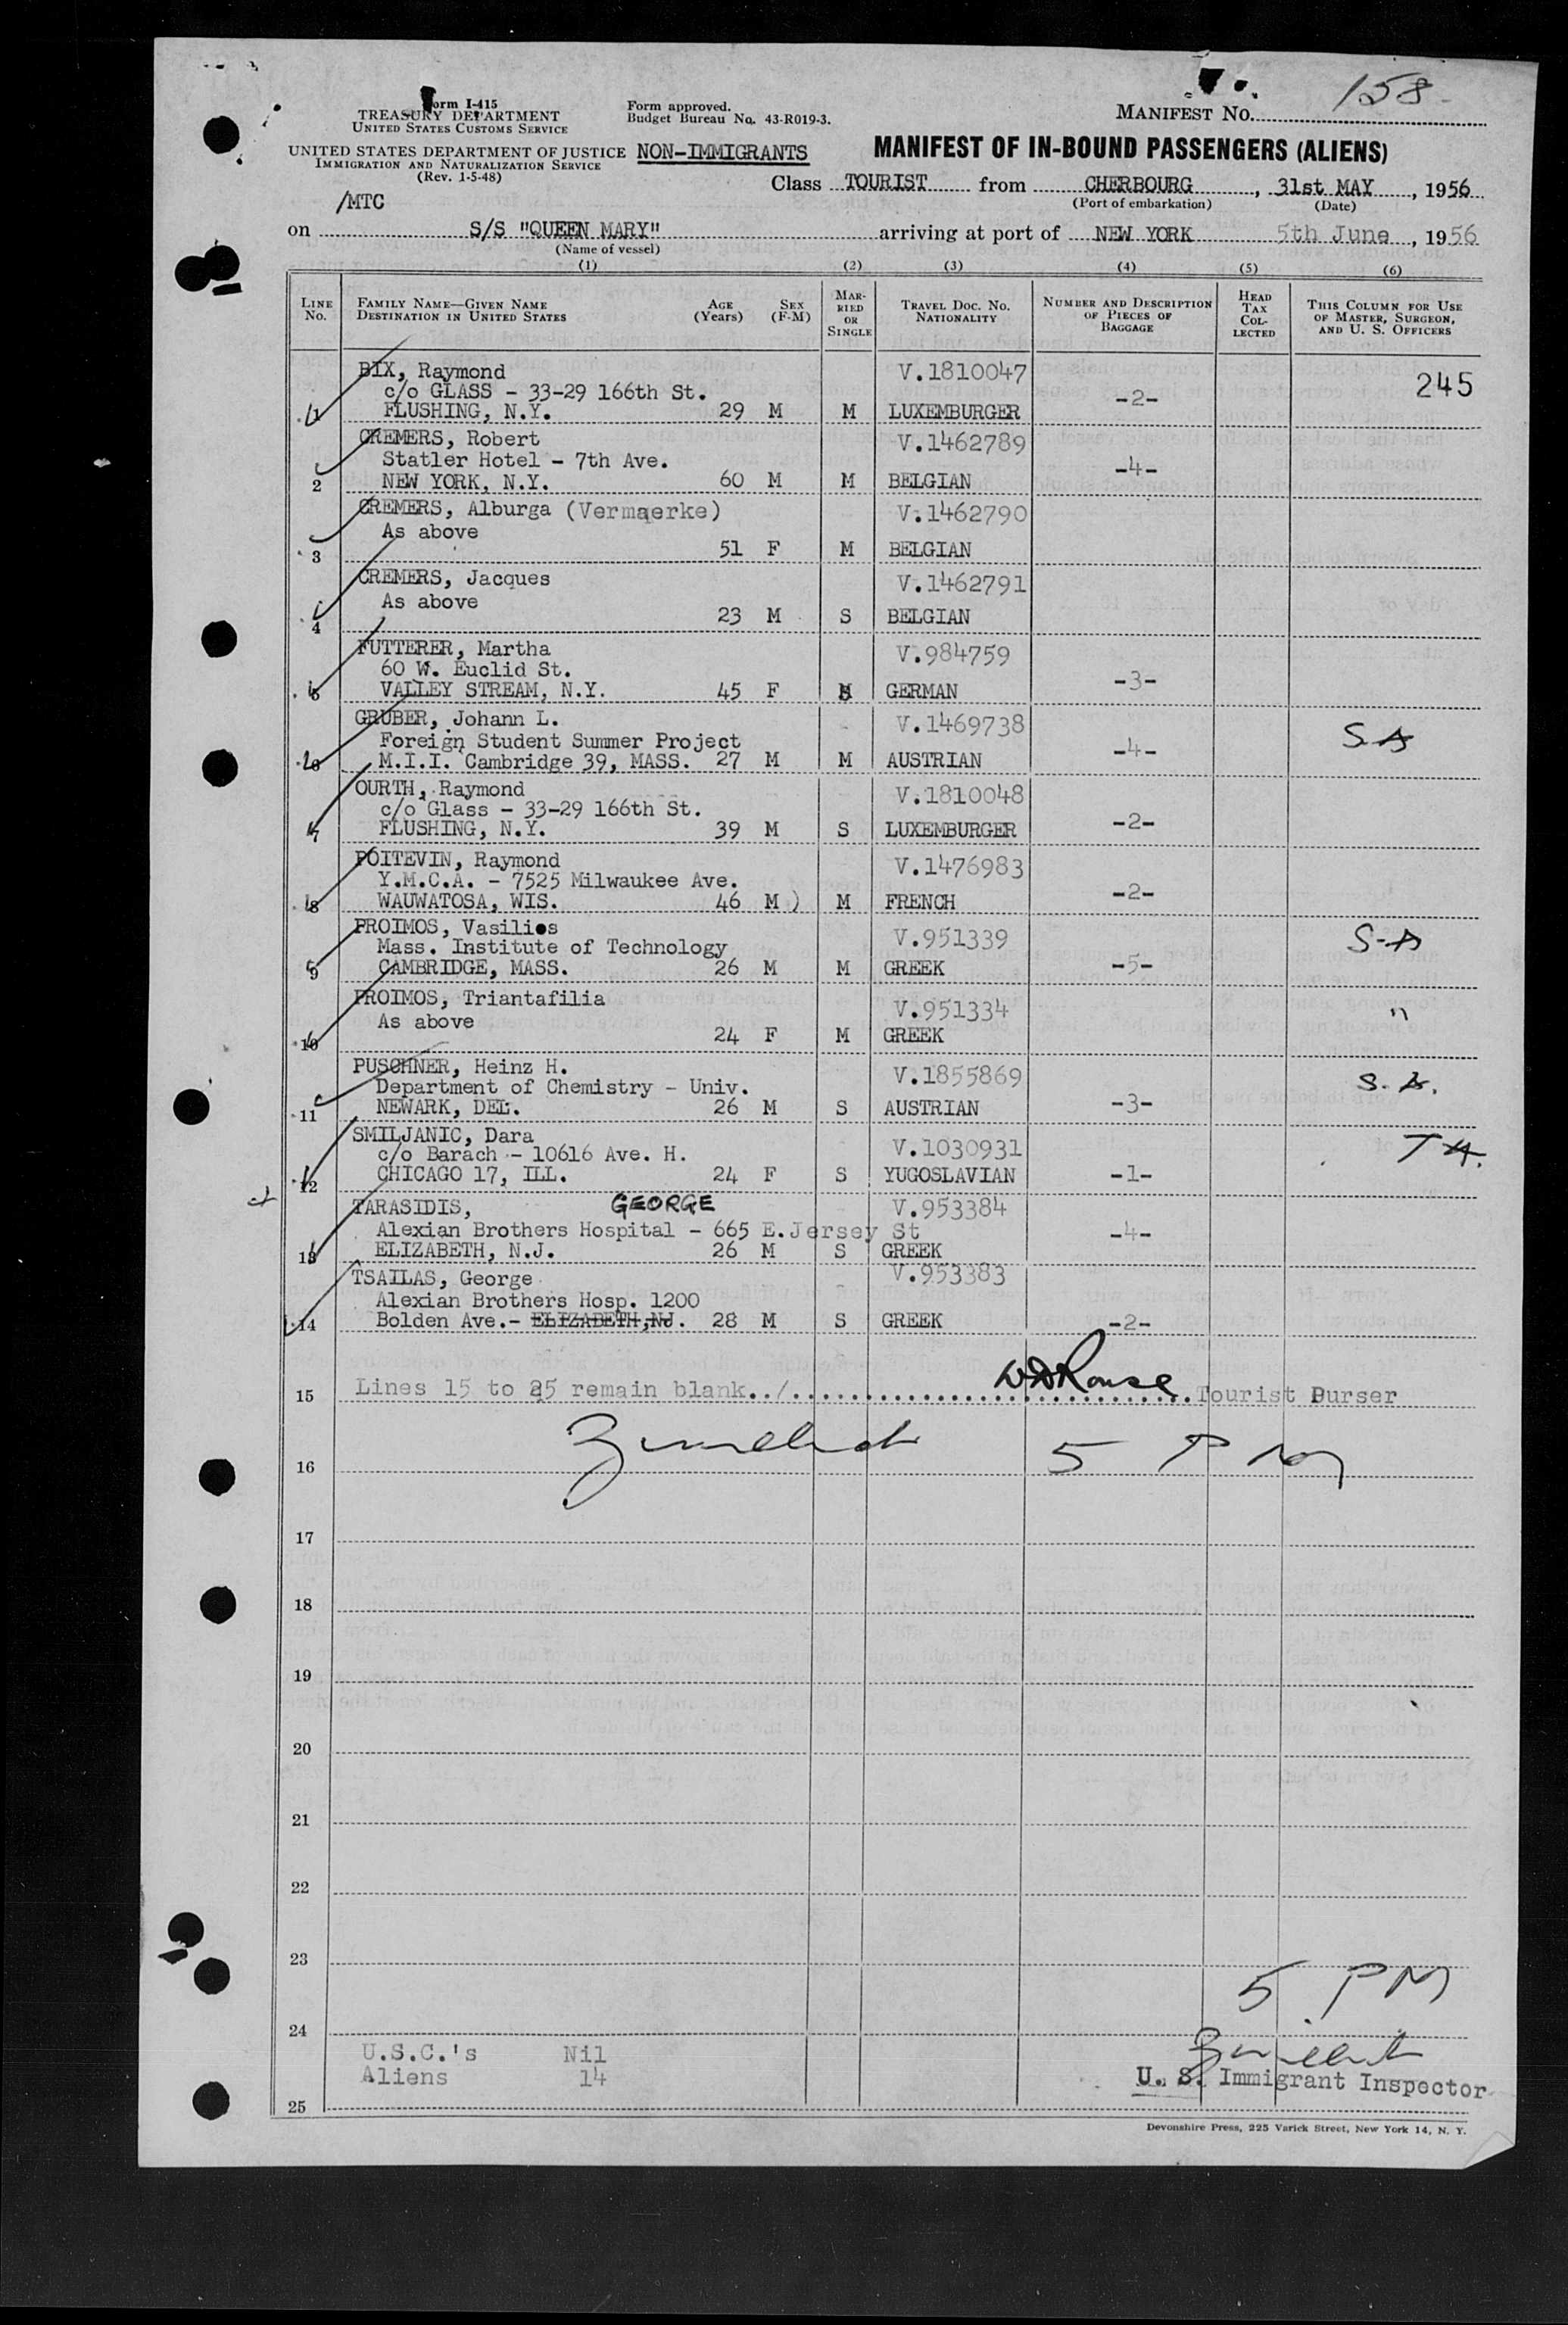 Form I-415
TREASURY DEPARTMENT
UNITED STATES CUSTOMS SERVICE
Form approved.
Budget Bureau No. 43-R019-3.
MANIFEST No. 158
UNITED STATES DEPARTMENT OF JUSTICE
IMMIGRATION AND NATURALIZATION SERVICE
(Rev. 1-5-48)
NON-IMMIGRANTS
MANIFEST OF IN-BOUND PASSENGERS (ALIENS)
Class TOURIST from CHERBOURG, 31st MAY, 1956
(Port of embarkation) (Date)
/MTC
on S/S "QUEEN MARY" arriving at port of NEW YORK 5th June, 1956
(Name of vessel)
(1) (2) (3) (4) (5) (6)
LINE No.
FAMILY NAME—GIVEN NAME
DESTINATION IN UNITED STATES
AGE (Years)
SEX (F-M)
MARRIED OR SINGLE
TRAVEL DOC. NO.
NATIONALITY
NUMBER AND DESCRIPTION OF PIECES OF BAGGAGE
HEAD TAX COLLECTED
THIS COLUMN FOR USE OF MASTER, SURGEON, AND U. S. OFFICERS
BIX, Raymond V.1810047 245
c/o GLASS - 33-29 166th St. -2-
1 FLUSHING, N.Y. 29 M M LUXEMBURGER
CREMERS, Robert V.1462789
Statler Hotel - 7th Ave. -4-
2 NEW YORK, N.Y. 60 M M BELGIAN
CREMERS, Alburga (Vermaerke) V.1462790
As above
3 51 F M BELGIAN
CREMERS, Jacques V.1462791
As above
4 23 M S BELGIAN
FUTTERER, Martha V.984759
60 W. Euclid St. -3-
5 VALLEY STREAM, N.Y. 45 F GERMAN
GRUBER, Johann L. V.1469738 S-A
Foreign Student Summer Project -4-
6 M.I.I. Cambridge 39, MASS. 27 M M AUSTRIAN
OURTH, Raymond V.1810048
c/o Glass - 33-29 166th St. -2-
7 FLUSHING, N.Y. 39 M S LUXEMBURGER
POITEVIN, Raymond V.1476983
Y.M.C.A. - 7525 Milwaukee Ave. -2-
8 WAUWATOSA, WIS. 46 M ) M FRENCH
PROIMOS, Vasilios V.951339 S-A
Mass. Institute of Technology
9 CAMBRIDGE, MASS. 26 M M GREEK -5-
PROIMOS, Triantafilia V.951334 "
As above
10 24 F M GREEK
PUSCHNER, Heinz H. V.1855869 S.A.
Department of Chemistry - Univ.
11 NEWARK, DEL. 26 M S AUSTRIAN -3-
SMILJANIC, Dara V.1030931
c/o Barach - 10616 Ave. H.
12 CHICAGO 17, ILL. 24 F S YUGOSLAVIAN -1-
TARASIDIS, GEORGE V.953384
Alexian Brothers Hospital - 665 E.Jersey St -4-
13 ELIZABETH, N.J. 26 M S GREEK
TSAILAS, George V.953383
Alexian Brothers Hosp. 1200
14 Bolden Ave.- ELIZABETH,NJ. 28 M S GREEK -2-
15 Lines 15 to 25 remain blank../ WDRouse Tourist Purser
16 5 PM
17
18
19
20
21
22
23
5 PM
24
U.S.C.'s Nil
Aliens 14
U. S. Immigrant Inspector
25
Devonshire Press, 225 Varick Street, New York 14, N. Y.